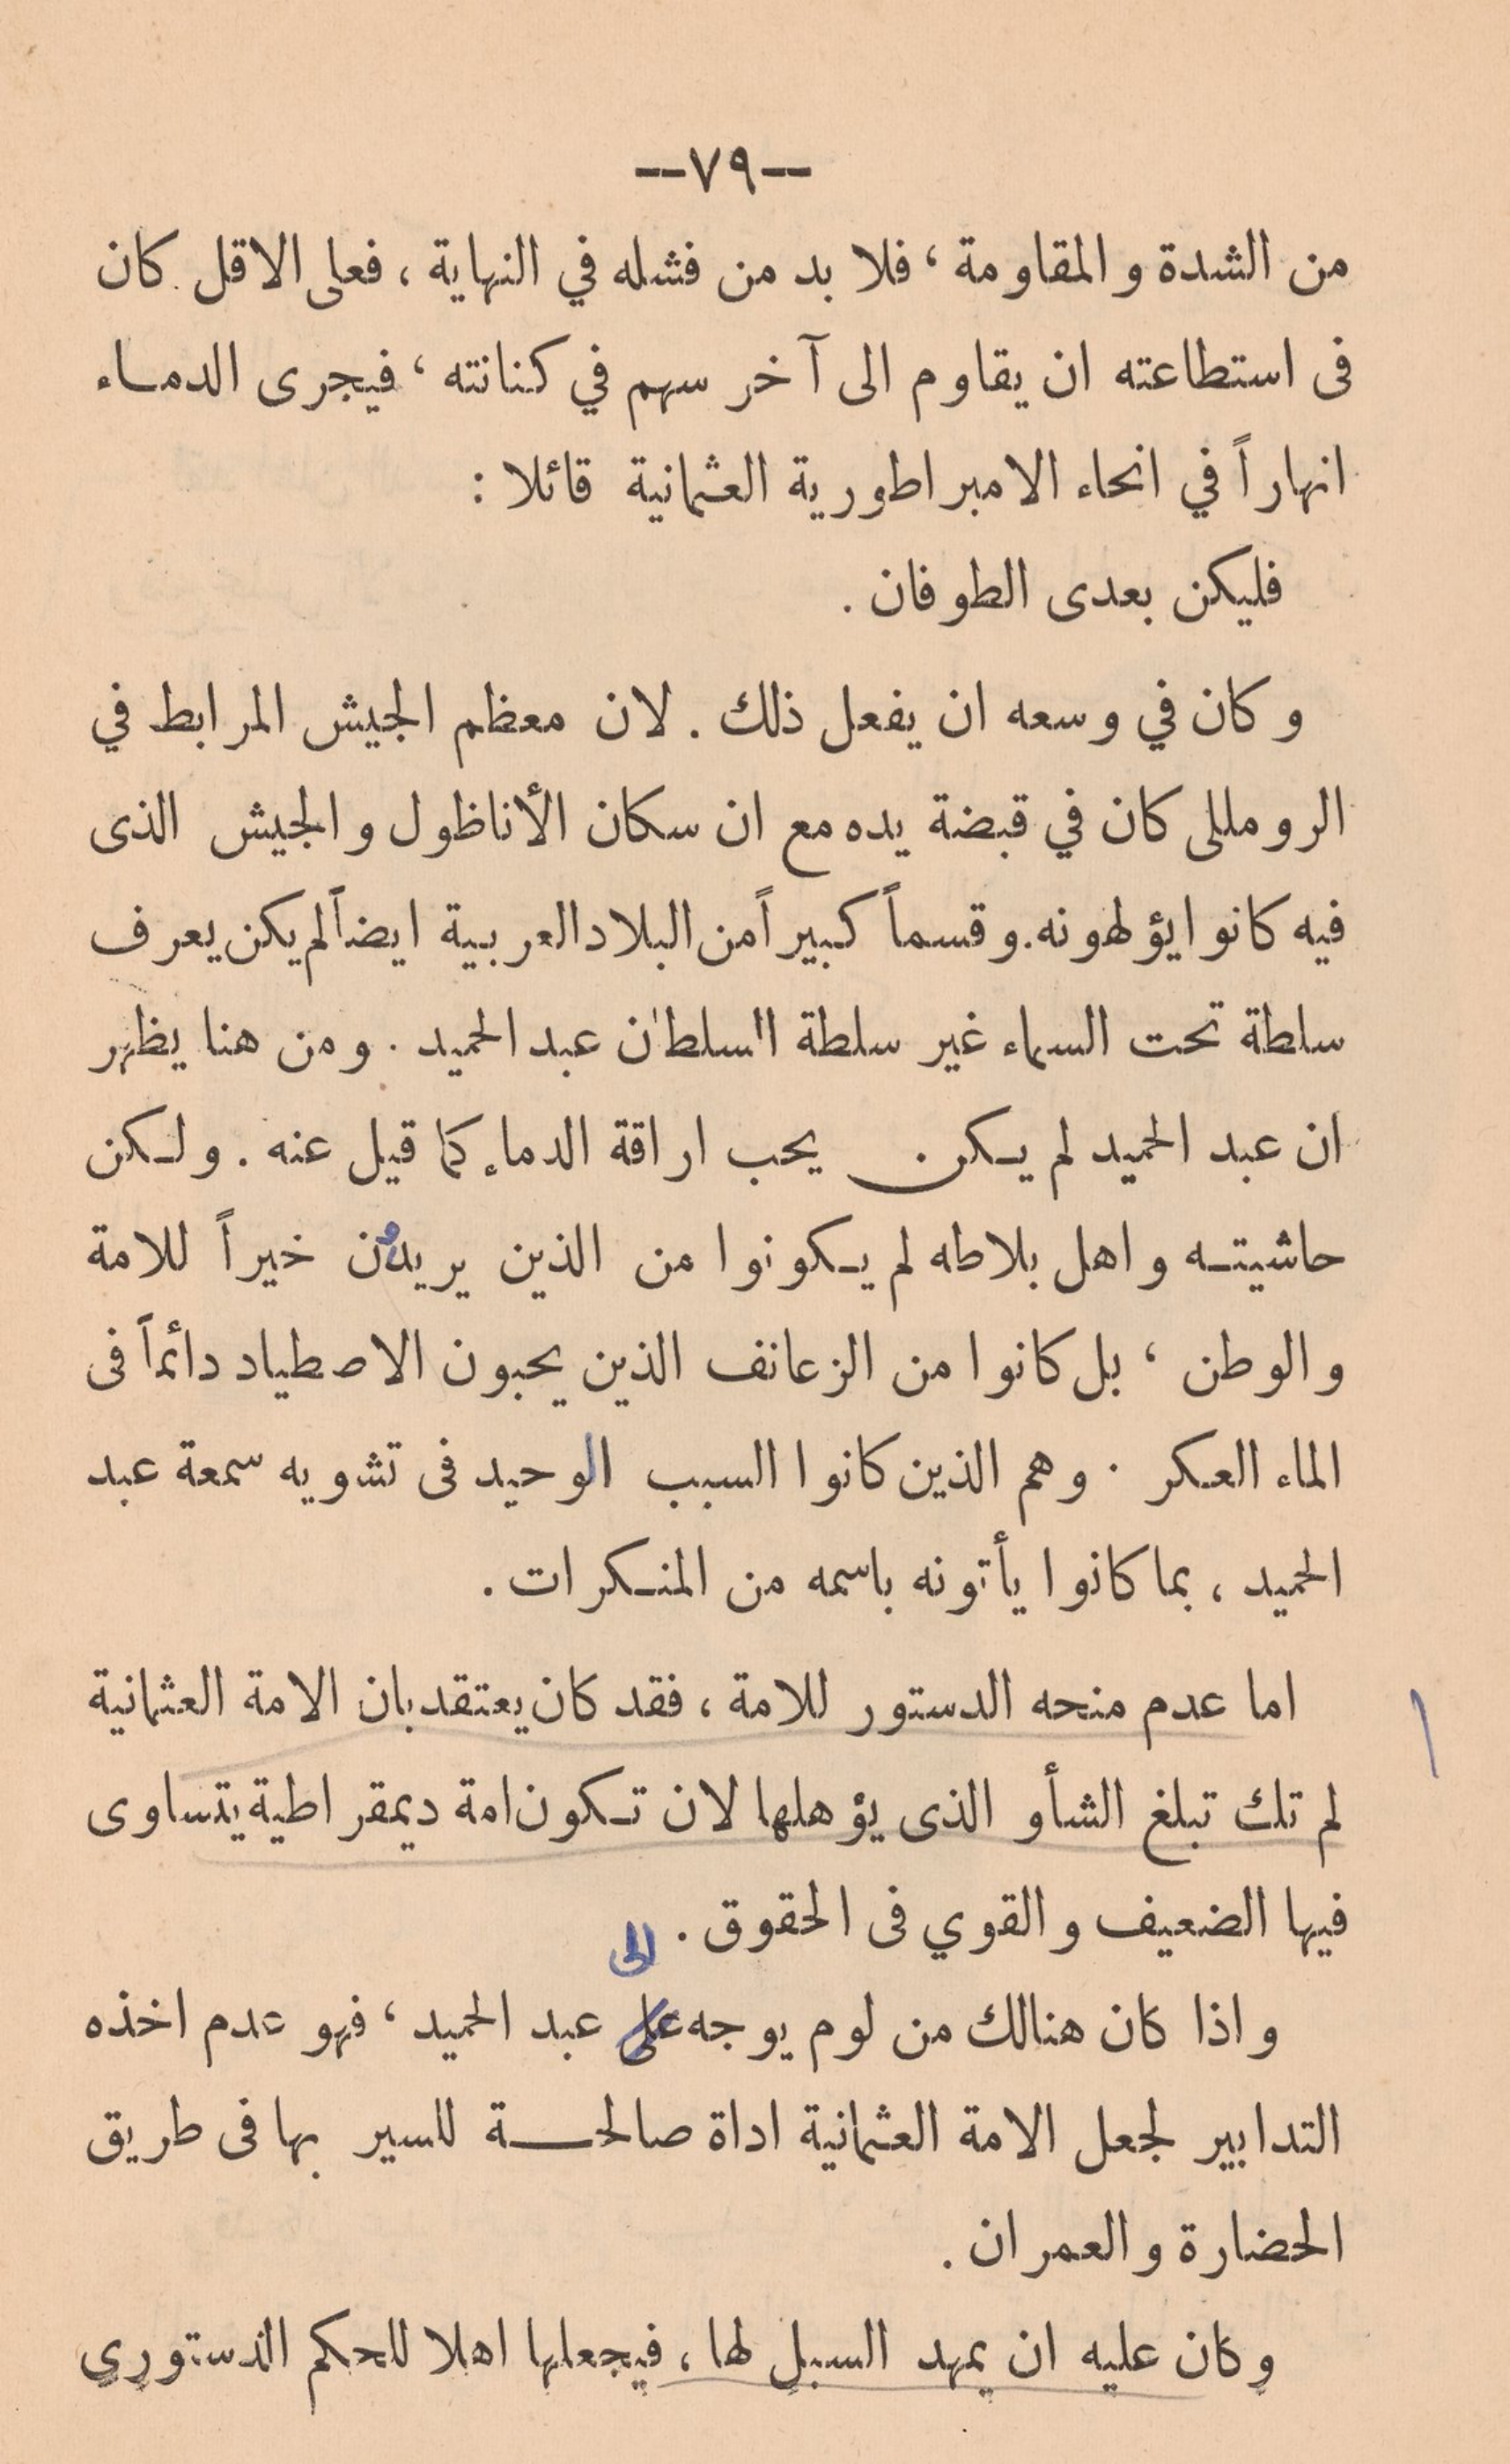 --٧٩--
من الشدة والمقاومة ، فلا بد من فشله في النهاية ، فعلى الاقل كان
فى استطاعته ان يقاوم الى آخر سهم في كنانته ، فيجرى الدماء
انهاراً في انحاء الامبراطورية العثمانية قائلا :
فليكن بعدى الطوفان .
وكان في وسعه ان يفعل ذلك . لان معظم الجيش المرابط في
الرومللى كان في قبضة يده مع ان سكان الأناظول والجيش الذى
فيه كانوا يؤلهونه . وقسماً كبيراً من البلاد العربية ايضاً لم يكن يعرف
سلطة تحت السماء غير سلطة السلطان عبد الحميد . ومن هنا يظهر
ان عبد الحميد لم يكن يحب اراقة الدماء كما قيل عنه . ولكن
حاشيته واهل بلاطه لم يكونوا من الذين يريدون خيراً للامة
والوطن ، بل كانوا من الزعانف الذين يحبون الاصطياد دائماً فى
الماء العكر . وهم الذين كانوا السبب الوحيد فى تشويه سمعة عبد
الحميد ، بما كانوا يأتونه باسمه من المنكرات .
اما عدم منحه الدستور للامة ، فقد كان يعتقد بان الامة العثمانية
لم تك تبلغ الشأو الذى يؤهلها لان تكون امة ديمقراطية يتساوى
فيها الضعيف والقوي فى الحقوق .
الى
واذا كان هنالك من لوم يوجه على عبد الحميد ، فهو عدم اخذه
التدابير لجعل الامة العثمانية اداة صالحة للسير بها فى طريق
الحضارة والعمران .
وكان عليه ان يمهد السبل لها ، فيجعلها اهلا للحكم الدستوري